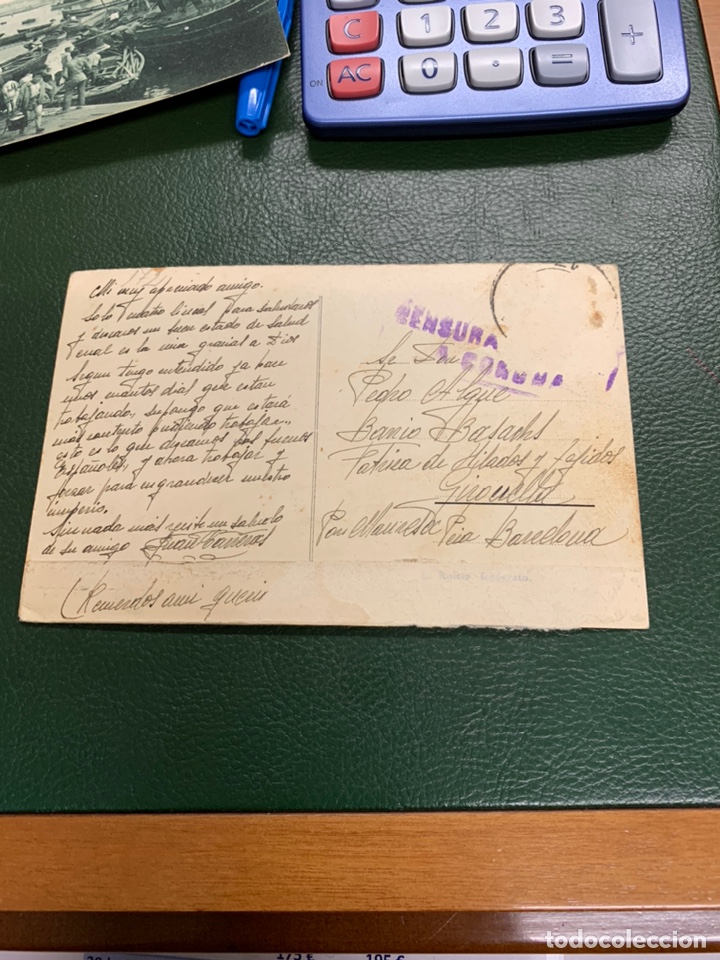 C
1
2
3
+
ON
AC
0
.
=
Mi muy apreciado amigo.
Solo cuatro lineas para saludaros
y desearos un buen estado de salud
cual es la mia gracias a Dios
Segun tengo entendido ya hace
unos cuantos dias que estan
trabajando, supongo que estará
mas contento pudiendo trabajar,
esto es lo que deseamos los buenos
Españoles, y ahora trabajar y
forzar para engrandecer nuestro
imperio.
Sin nada mas recibe un saludo
de su amigo Juan Torreras
(Recuerdos a mi
CENSURA
CORUÑA
Sr Don
Pedro Algue
Barrio Basachs
Fabrica de Hilados y Tejidos
Gironella
Por Manresa Pcia Barcelona
175 €
195 €
todocoleccion
todocoleccion.net